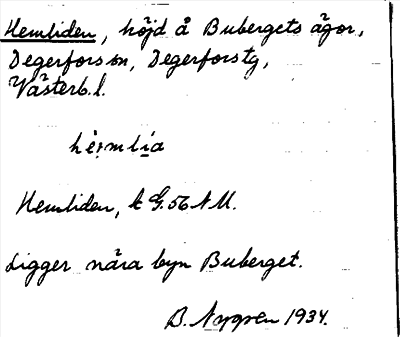 Hemliden, höjd å Bubergets ägor,
Degerfors sn, Degerforstg,
Västerb. l.
hè̩mlia
Hemliden, k G.56 NU.
Ligger nära byn Buberget.
B. Nygren 1934.